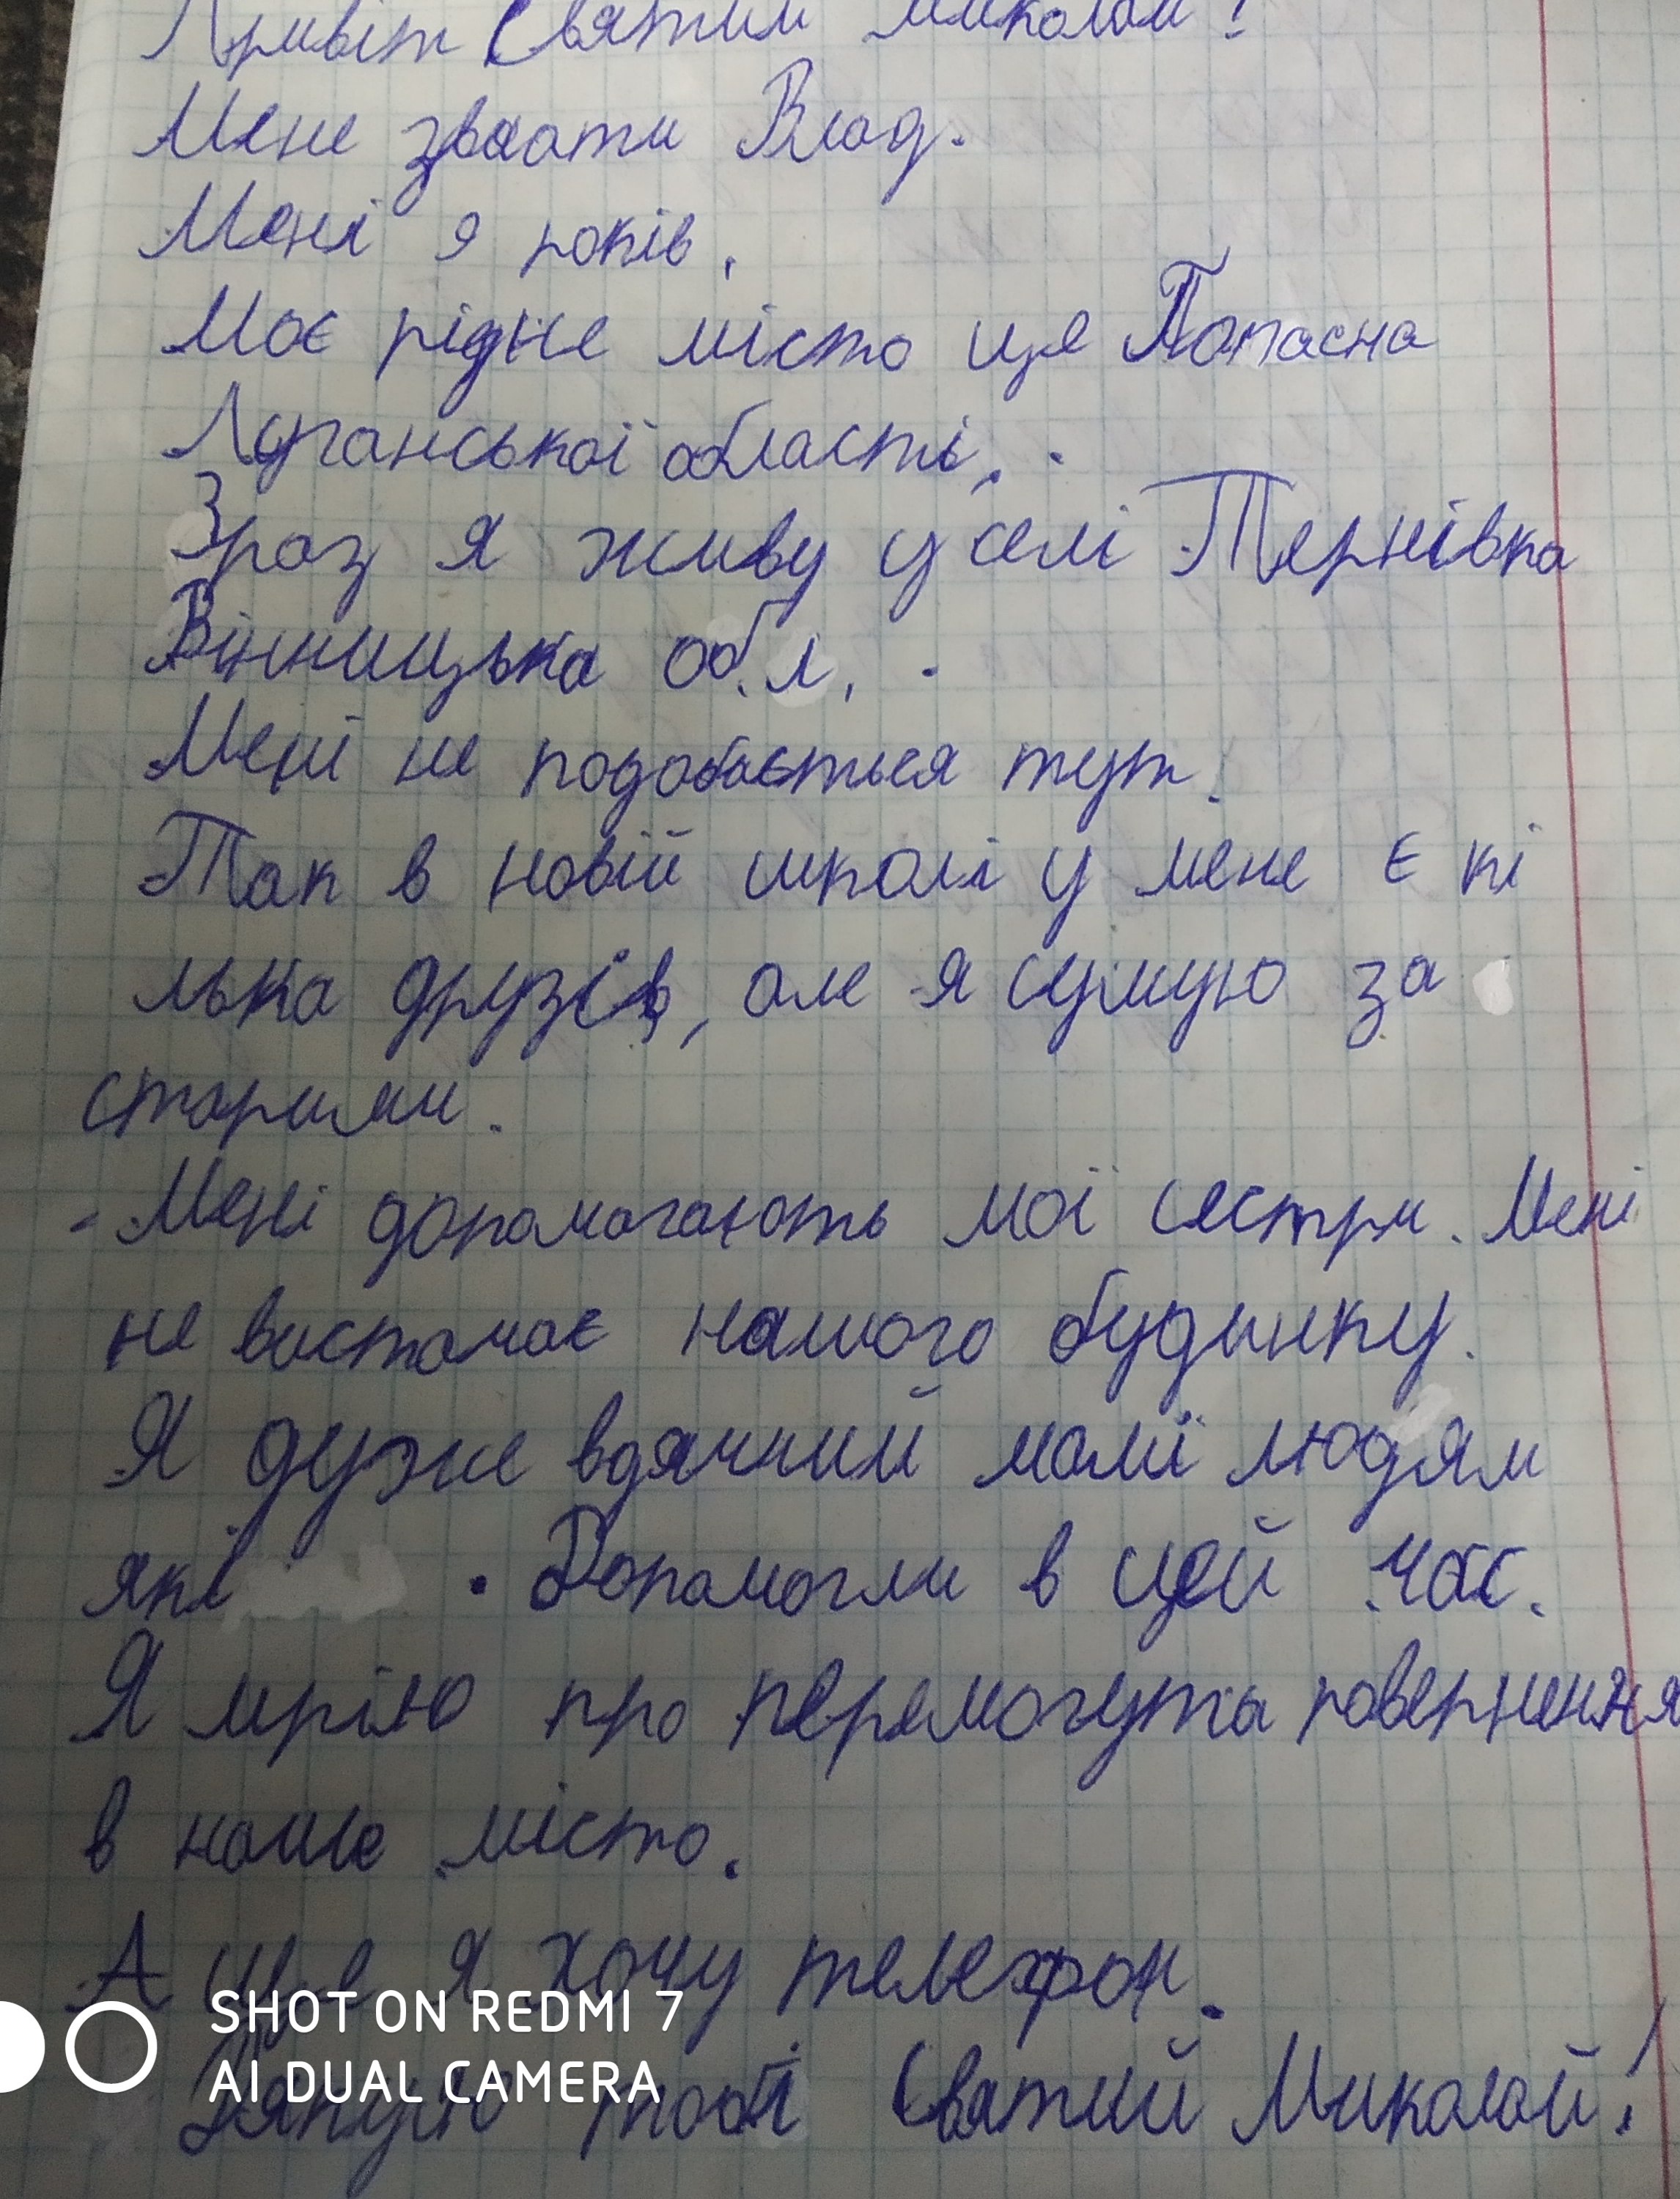 Привіт Святий Миколай!
Мене звати Влад.
Мені 9 років.
Моє рідне місто це Попасна
Луганської області.
Зраз я живу у селі Тернівка
Вінницька обл.
Мені не подобається тут.
Так в новій школі у мене є кі
лька друзів, але я сумую за
старими.
-Мені допомогають мої сестри. Мені
не вистачає нашого будинку.
Я дуже вдячний мамі людям
які Допомогли в цей час.
Я мрію про перемогу та повернення
в наше місто.
А ще я хочу телефон.
Дякую тобі Святий Миколай!
SHOT ON REDMI 7
AI DUAL CAMERA